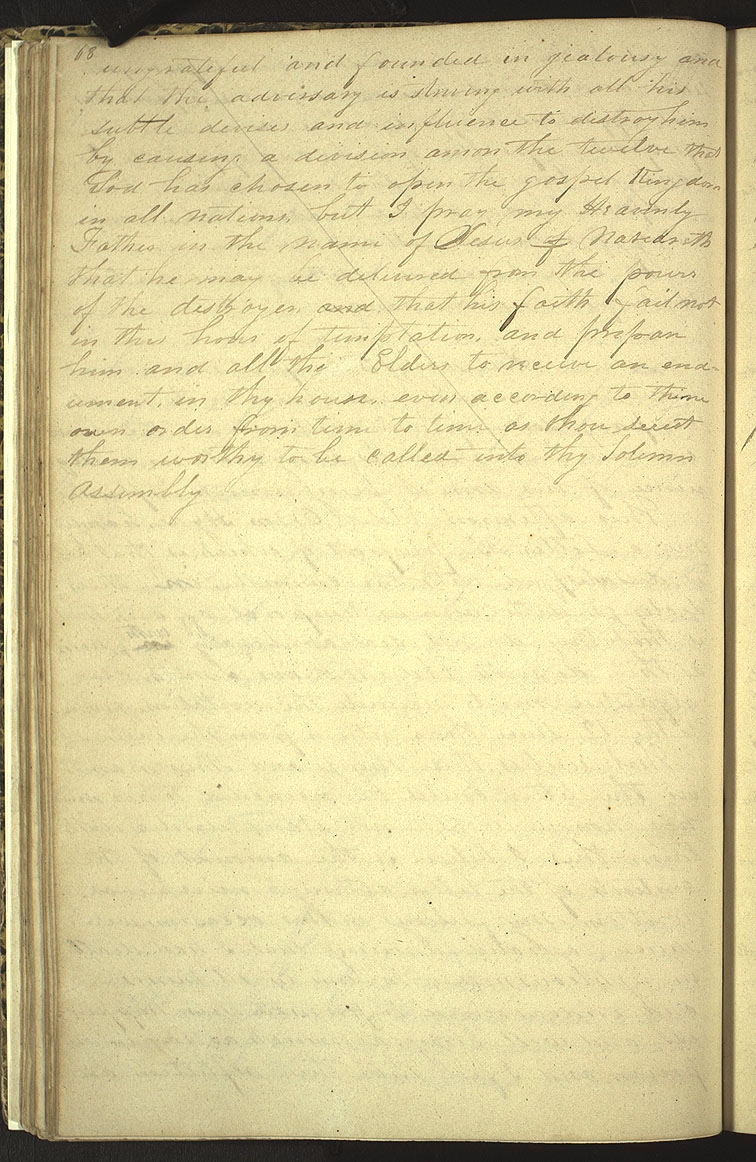 68
ungrateful and founded in jealousy and
that the adversary is striving with all his
subtle devises and influence to distroy him
by causing a division amon the twelve that
God has chosen to open the gospel Kingdom
in all nations, but I pray my Heavenly
Father in the name of Jesus of Nazareth
that he may be delivered from the power
of the destroyer, and that his faith fail not
in this hour of temptation, and prepare
him and all the Elders to receive an end-
ument, in thy house, even according to thine
own order from time to time as thou seeest
them worthy to be called into thy Solemn
Assembly